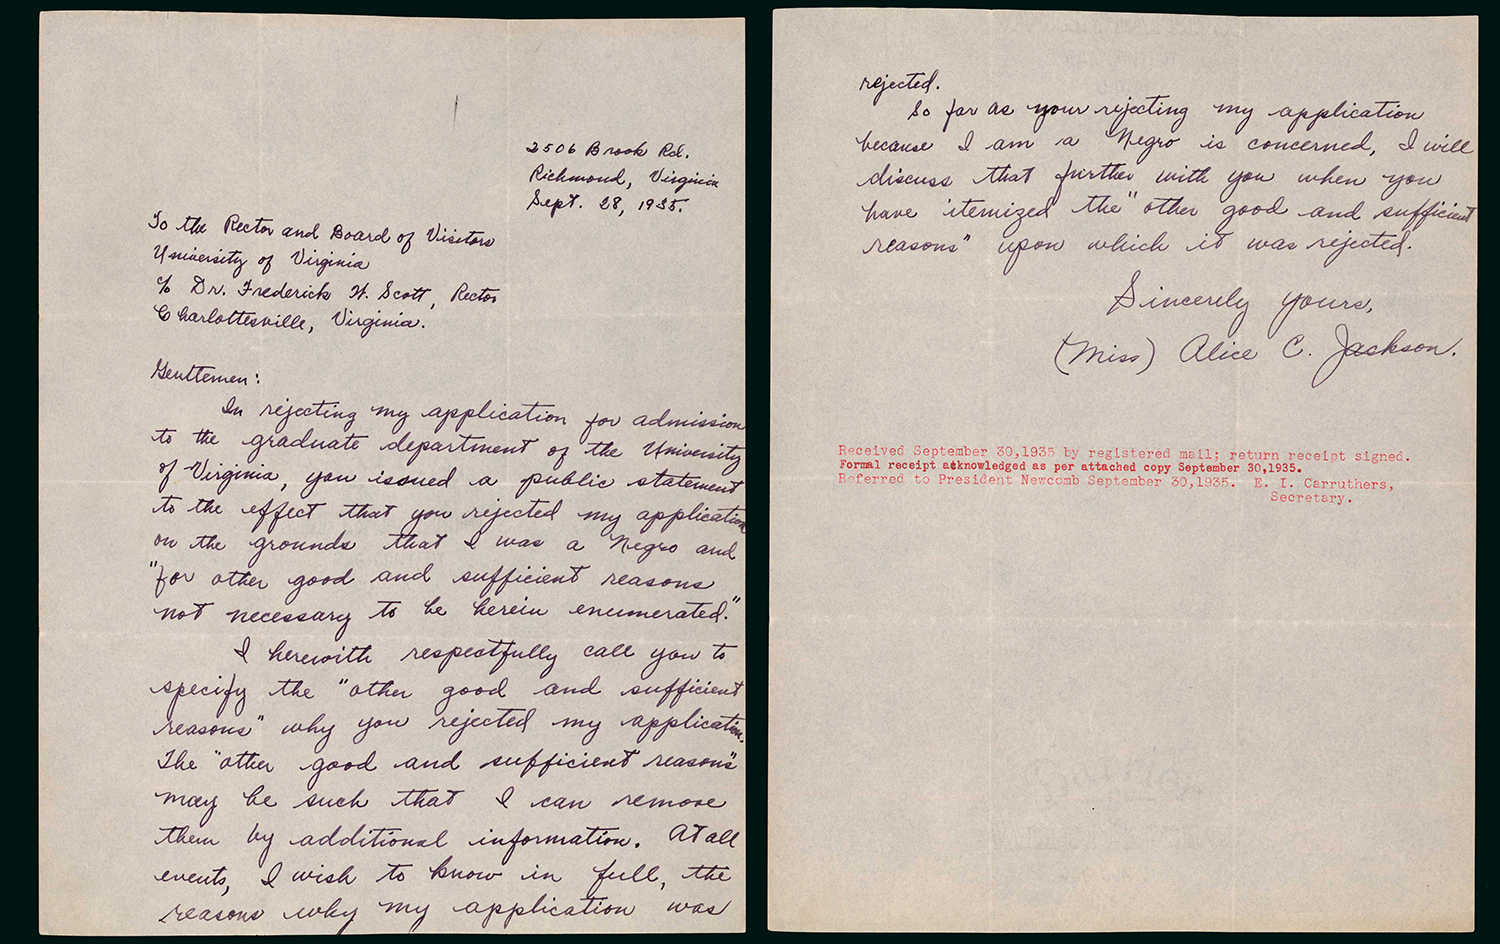 2506 Brook Rd.
Richmond, Virginia
Sept. 28, 1935.
To the Rector and Board of Visitors
University of Virginia
c/o Dr. Frederick W. Scott, Rector
Charlottesville, Virginia.
Gentlemen:
In rejecting my application for admission
to the graduate department of the University
of Virginia, you issued a public statement
to the effect that you rejected my application
on the grounds that I was a Negro and
"for other good and sufficient reasons
not necessary to be herein enumerated."
I herewith respectfully call you to
specify the "other good and sufficient
reasons" why you rejected my application.
The "other good and sufficient reasons"
may be such that I can remove
them by additional information. At all
events, I wish to know in full, the
reasons why my application was
rejected.
So far as your rejecting my application
because I am a Negro is concerned, I will
discuss that further with you when you
have itemized the "other good and sufficient
reasons" upon which it was rejected.
Sincerely yours,
(Miss) Alice C. Jackson.
Received September 30,1935 by registered mail; return receipt signed.
Formal receipt acknowledged as per attached copy September 30,1935.
Referred to President Newcomb September 30,1935. E. I. Carruthers,
Secretary.